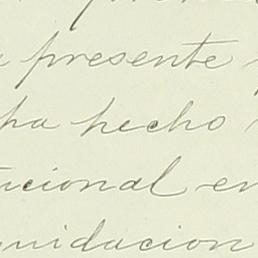 presente
ha hecho
ucional en
quidacion